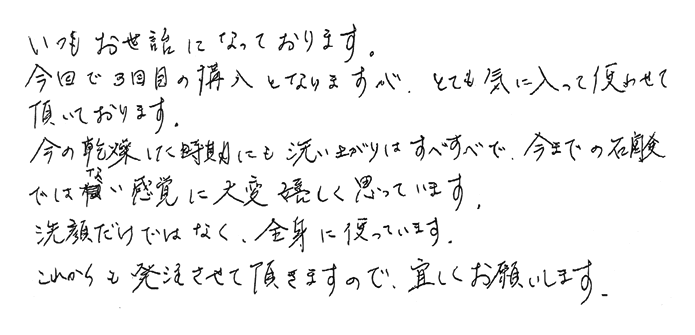 いつもお世話になっております。
今回で3回目の購入となりますが、とても気に入って使わせて
頂いております。
今の乾燥した時期にも洗い上がりはすべすべで、今までの石鹸
ではない感覚に大変嬉しく思っています。
洗顔だけではなく、全身に使っています。
これからも発注させて頂きますので、宜しくお願いします。